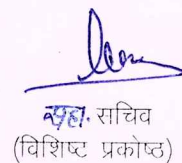 सहा. सचिव
(विशिष्ट प्रकोष्ठ)